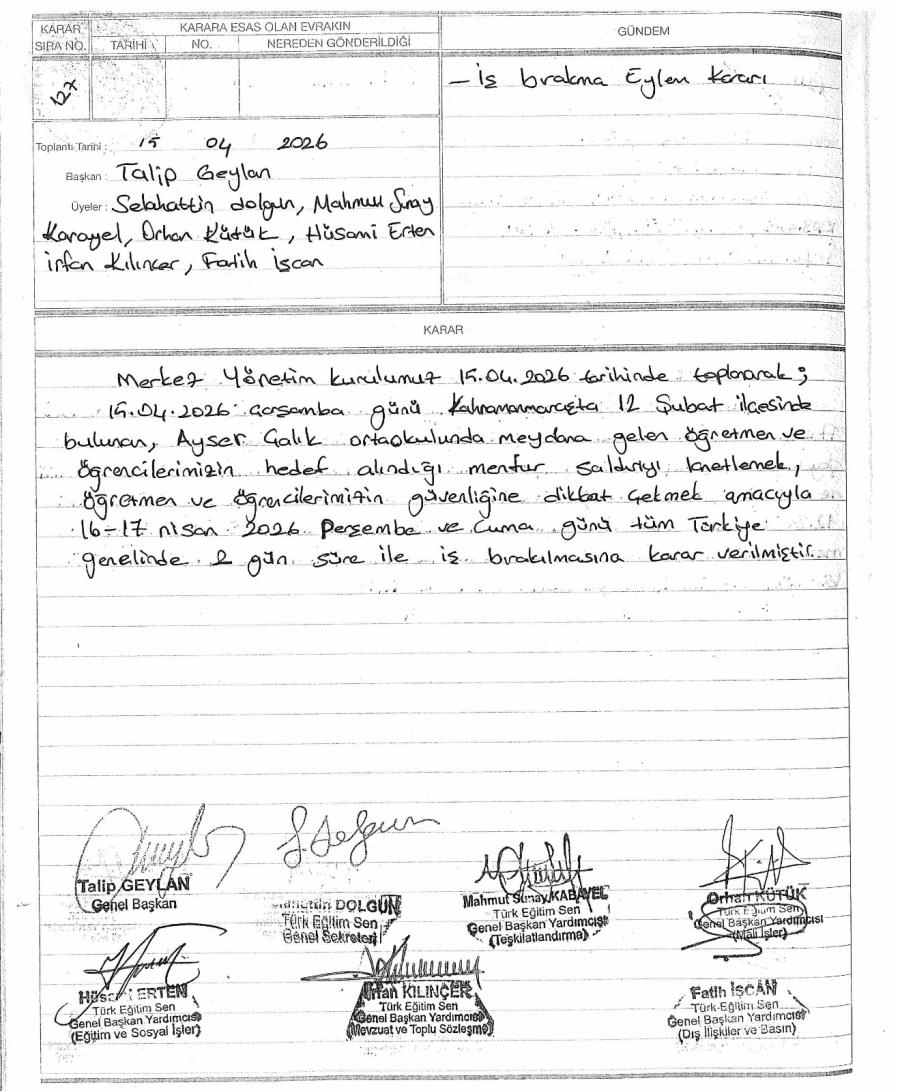 KARAR SIRA NO.
KARARA ESAS OLAN EVRAKIN
TARİHİ
NO.
NEREDEN GÖNDERİLDİĞİ
GÜNDEM
127
- İş bırakma Eylem Kararı
Toplantı Tarihi : 15 04 2026
Başkan : Talip Geylan
Üyeler : Selahattin dolgun, Mahmut Sunay
Karayel, Orhan Kütük, Hüsami Erten
irfan Kılınçer, Fatih İşcan
KARAR
Merkez Yönetim kurulumuz 15.04.2026 tarihinde toplanarak;
15.04.2026 Çarşamba günü Kahramanmaraşta 12 Şubat ilçesinde
bulunan, Ayser Çalık ortaokulunda meydana gelen öğretmen ve
öğrencilerimizin hedef alındığı menfur saldırıyı kınetlemek,
öğretmen ve öğrencilerimizin güvenliğine dikkat çekmek amacıyla
16-17 nisan 2026 Perşembe ve Cuma günü tüm Türkiye
genelinde 2 gün süre ile iş bırakılmasına karar verilmiştir.
Talip GEYLAN
Genel Başkan
DOLGUN
Türk Eğitim Sen
Genel Sekreteri
Mahmut Sunay KABAYEL
Türk Eğitim Sen
Genel Başkan Yardımcısı
(Teşkilatlandırma)
Orhan KÜTÜK
Türk Eğitim Sen
Genel Başkan Yardımcısı
(Mali İşler)
ERTEN
Türk Eğitim Sen
Genel Başkan Yardımcısı
(Eğitim ve Sosyal İşler)
İrfan KILINÇER
Türk Eğitim Sen
Genel Başkan Yardımcısı
(Mevzuat ve Toplu Sözleşme)
Fatih İŞCAN
Türk Eğitim Sen
Genel Başkan Yardımcısı
(Dış İlişkiler ve Basın)